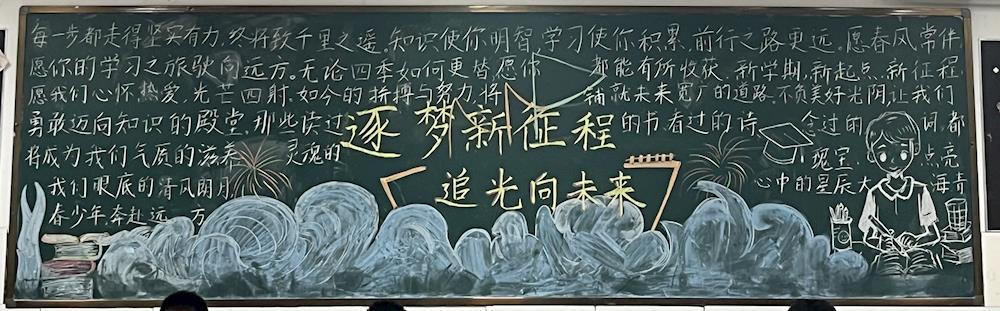 每一步都走得坚实有力,终将致千里之遥。知识使你明智,学习使你积累,前行之路更远。愿春风常伴
愿你的学习之旅驶向远方。无论四季如何更替,愿你都能有所收获。新学期,新起点,新征程,
愿我们心怀热爱,光芒四射。如今的拼搏与努力,将铺就未来宽广的道路。不负美好光阴,让我们
勇敢迈向知识的殿堂。那些读过的书,看过的诗,念过的词,都
将成为我们气质的滋养、灵魂的瑰宝、点亮
我们眼底的清风朗月、心中的星辰大海。青
春少年奔赴远方
逐梦新征程
追光向未来